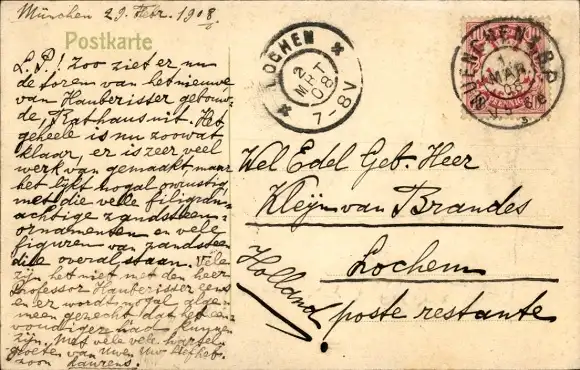 München 29 Febr. 1908.
Postkarte
L.P.! Zoo ziet er nu
de toren van het nieuwe
van Hauberisser gebouw-
de, Rathaus uit. Het
geheele is nu zoowat
klaar, er is zeer veel
werk van gemaakt, maar
het lijkt nogal onrustig,
met die vele filigraan-
achtige zandsteen-
ornamenten en vele
figuren van zandsteen
die overal staan. Vele
zijn het niet met den heer
Professor Hauberisser eens
en er wordt nogal alge-
meen gezegd dat het een-
voudiger had kunnen
zijn. Met vele vele hartel.
groeten van Uwen Uw liefheb.
zoon Laurens.
LOCHEM
2
MRT
08
7-8V
1
MÄR
08
PFENNIG
Wel Edel Geb. Heer
Kleijn van Brandes
Lochem
poste restante
Holland